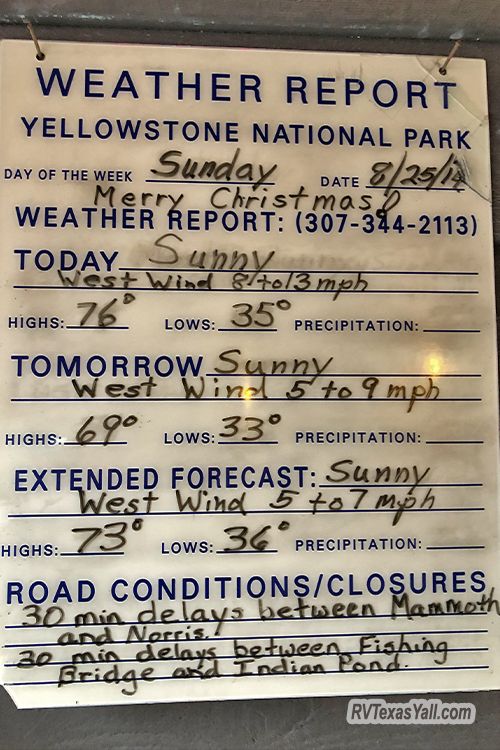 WEATHER REPORT
YELLOWSTONE NATIONAL PARK
DAY OF THE WEEK Sunday DATE 8/25/14
Merry Christmas!
WEATHER REPORT: (307-344-2113)
TODAY Sunny
West Wind 8 to 13 mph
HIGHS: 76° LOWS: 35° PRECIPITATION:
TOMORROW Sunny
West Wind 5 to 9 mph
HIGHS: 69° LOWS: 33° PRECIPITATION:
EXTENDED FORECAST: Sunny
West Wind 5 to 7 mph
HIGHS: 73° LOWS: 36° PRECIPITATION:
ROAD CONDITIONS/CLOSURES
30 min delays between Mammoth
and Norris.
30 min delays between Fishing
Bridge and Indian Pond.
RVTexasYall.com